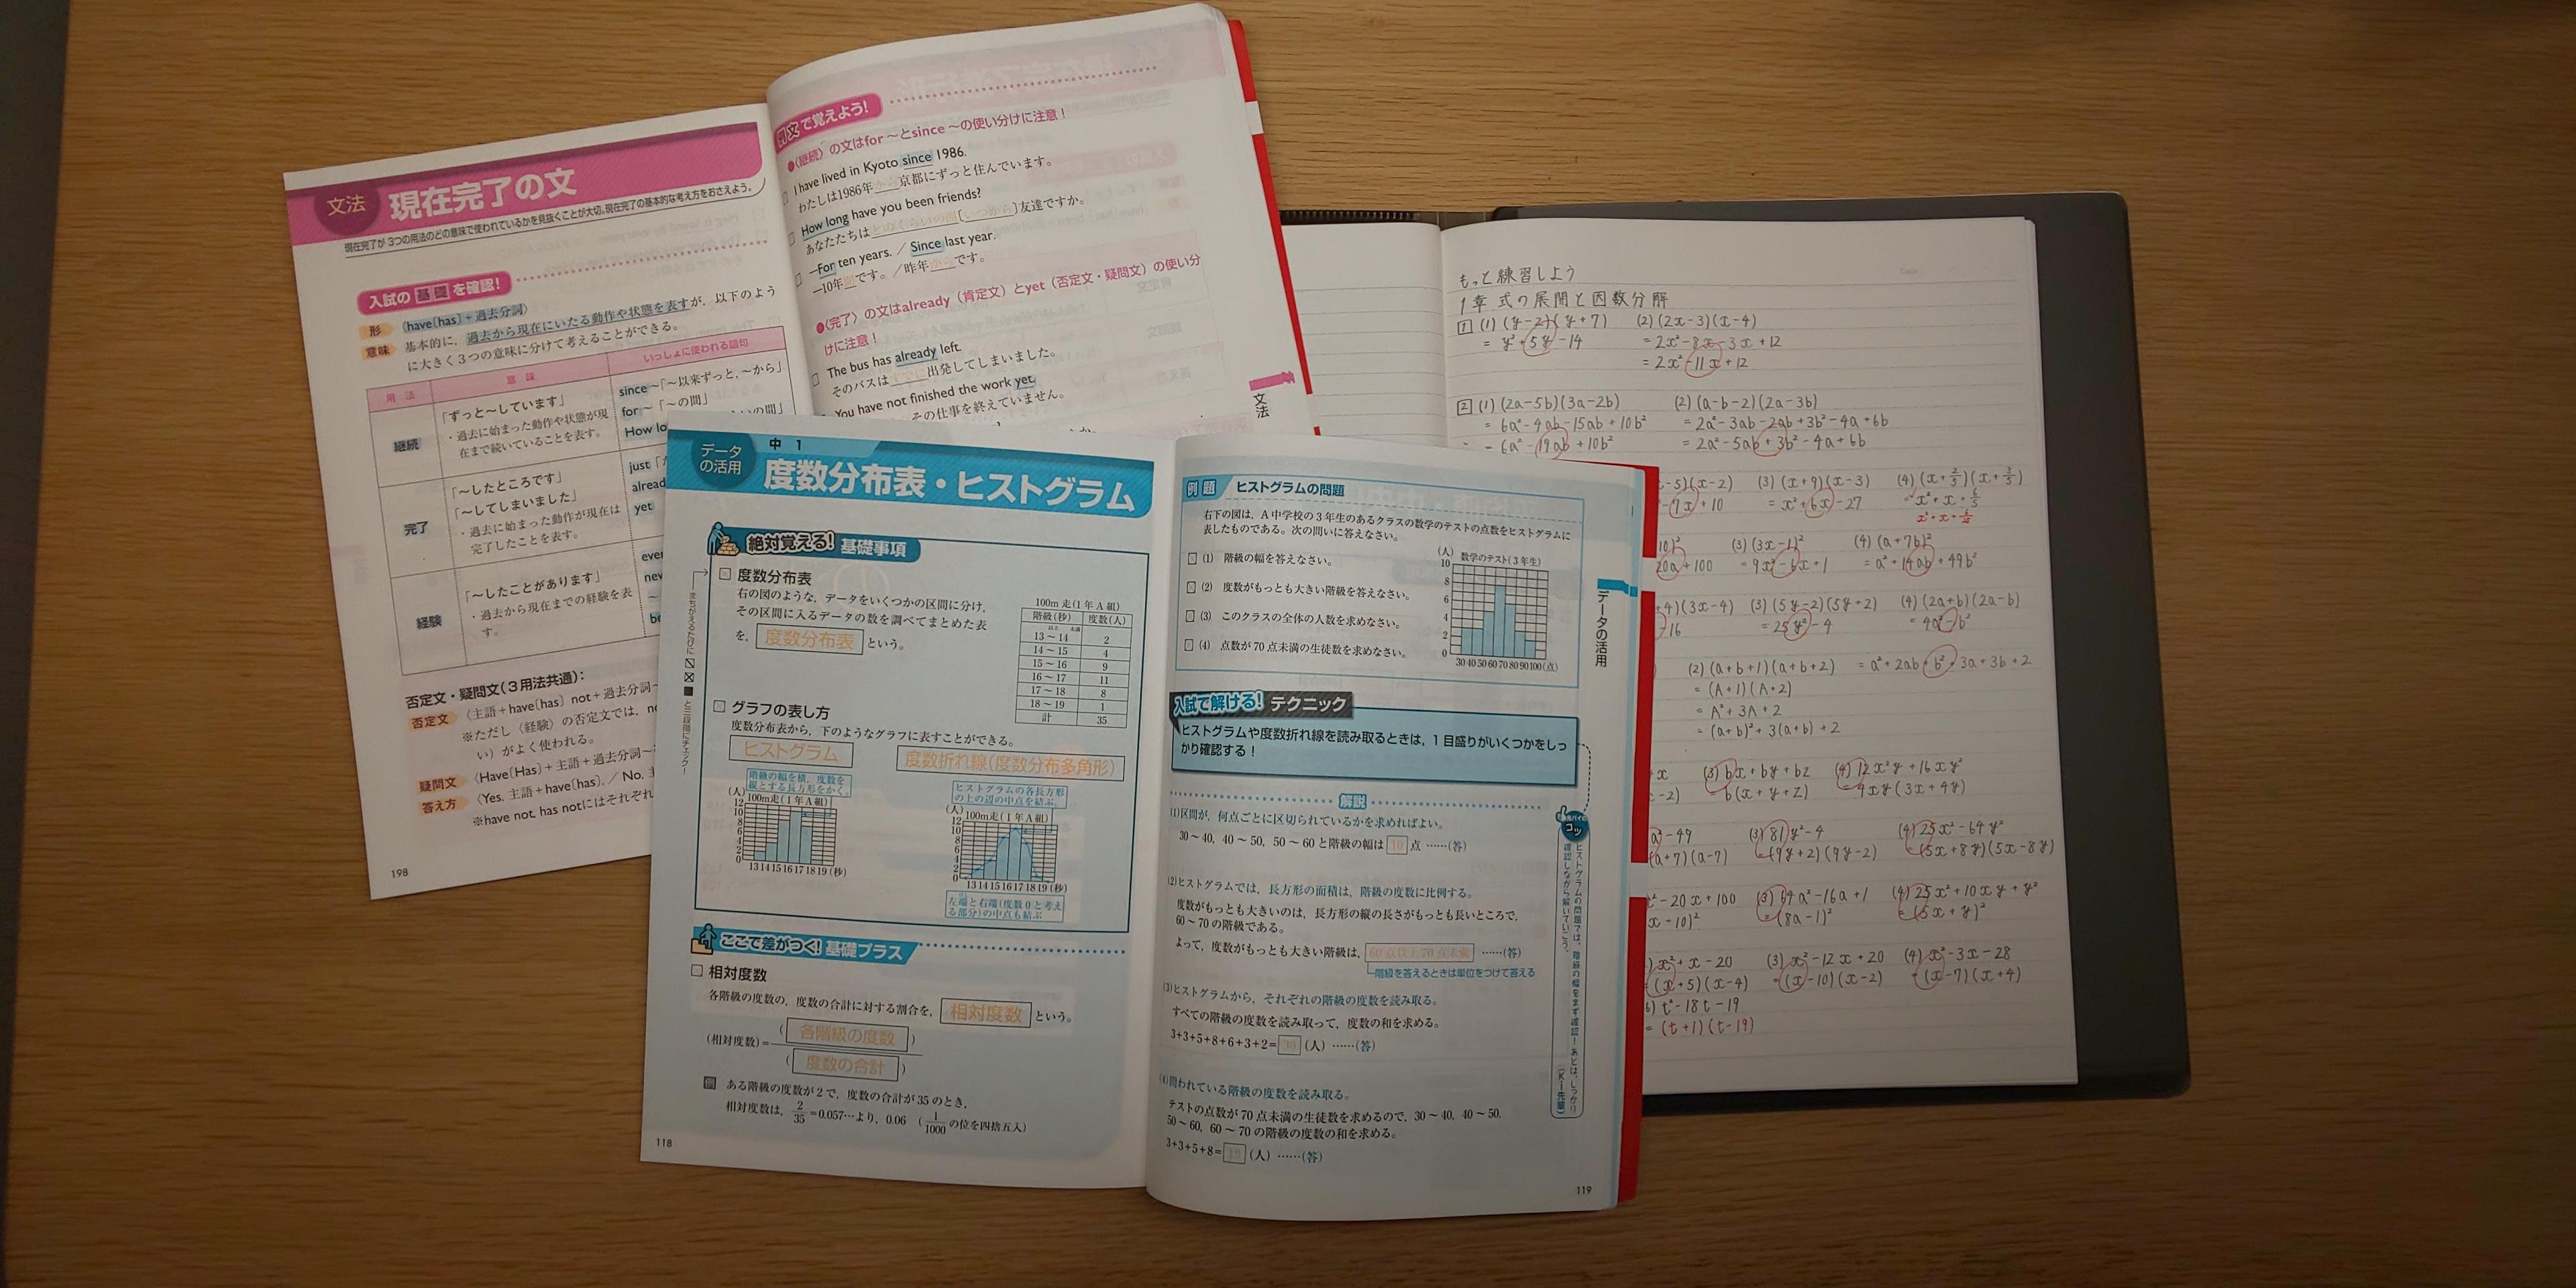 文法
現在完了の文
現在完了が3つの用法のどの意味で使われているかを見抜くことが大切。現在完了の基本的な考え方をおさえよう。
入試の基礎を確認!
形 〈have[has]+過去分詞〉
意味 基本的に、過去から現在にいたる動作や状態を表すが、以下のよう
に大きく3つの意味に分けて考えることができる。
用法 意味 いっしょに使われる語句
継続
「ずっと〜しています」
・過去に始まった動作や状態が現
在まで続いていることを表す。
since〜「〜以来ずっと,〜から」
for〜「〜の間」
How lo
の間」
完了
「〜したところです」
「〜してしまいました」
・過去に始まった動作が現在は
完了したことを表す。
just
alread
yet
経験
「〜したことがあります」
・過去から現在までの経験を表
す。
ever
nev
〜
be
否定文・疑問文(3用法共通):
否定文 〈主語+have[has] not+過去分詞〜
※ただし〈経験〉の否定文では,
い)がよく使われる。
疑問文 〈Have[Has]+主語+過去分詞〜
答え方 〈Yes, 主語+have[has]. / No,
※have not, has notにはそれぞれ
198
例文で覚えよう!
●〈継続〉の文はfor〜とsince〜の使い分けに注意!
I have lived in Kyoto since 1986.
わたしは1986年から京都にずっと住んでいます。
How long have you been friends?
あなたたちはどのくらいの間[いつから]友達ですか。
—For ten years. / Since last year.
—10年間です。/昨年からです。
●〈完了〉の文はalready(肯定文)とyet(否定文・疑問文)の使い分
けに注意!
The bus has already left.
そのバスは出発してしまいました。
You have not finished the work yet.
その仕事を終えていません。
文法
データの活用
中1
度数分布表・ヒストグラム
絶対覚える! 基礎事項
まちがえるたびに と三段階にチェック!
度数分布表
右の図のような,データをいくつかの区間に分け,
その区間に入るデータの数を調べてまとめた表
を, 度数分布表 という。
100m走(1年A組)
階級(秒) 度数(人)
以上 未満
13〜14 2
14〜15 4
15〜16 9
16〜17 11
17〜18 8
18〜19 1
計 35
グラフの表し方
度数分布表から,下のようなグラフに表すことができる。
ヒストグラム
階級の幅を横,度数を
縦とする長方形をかく。
(人) 100m走(1年A組)
12
10
8
6
4
2
0
13 14 15 16 17 18 19 (秒)
度数折れ線(度数分布多角形)
ヒストグラムの各長方形
の上の辺の中点を結ぶ。
(人) 100m走(1年A組)
12
10
8
6
4
2
0
13 14 15 16 17 18 19 (秒)
左端と右端(度数0と考え
る部分)の中点も結ぶ
ここで差がつく! 基礎プラス
相対度数
各階級の度数の,度数の合計に対する割合を, 相対度数 という。
(相対度数)=(各階級の度数)/(度数の合計)
例 ある階級の度数が2で,度数の合計が35のとき,
相対度数は, 2/35=0.057…より, 0.06 (1/1000の位を四捨五入)
118
例題 ヒストグラムの問題
右下の図は,A中学校の3年生のあるクラスの数学のテストの点数をヒストグラムに
表したものである。次の問いに答えなさい。
(1) 階級の幅を答えなさい。
(2) 度数がもっとも大きい階級を答えなさい。
(3) このクラスの全体の人数を求めなさい。
(4) 点数が70点未満の生徒数を求めなさい。
(人) 数学のテスト(3年生)
10
8
6
4
2
0
30 40 50 60 70 80 90 100(点)
入試で解ける! テクニック
ヒストグラムや度数折れ線を読み取るときは,1目盛りがいくつかをしっ
かり確認する!
解説
(1)区間が,何点ごとに区切られているかを求めればよい。
30〜40, 40〜50, 50〜60と階級の幅は 10 点 ……(答)
(2)ヒストグラムでは,長方形の面積は,階級の度数に比例する。
度数がもっとも大きいのは,長方形の縦の長さがもっとも長いところで,
60〜70の階級である。
よって,度数がもっとも大きい階級は, 60点以上70点未満 ……(答)
階級を答えるときは単位をつけて答える
(3)ヒストグラムから,それぞれの階級の度数を読み取る。
すべての階級の度数を読み取って,度数の和を求める。
3+3+5+8+6+3+2= 30 (人) ……(答)
(4)問われている階級の度数を読み取る。
テストの点数が70点未満の生徒数を求めるので, 30〜40, 40〜50,
50〜60, 60〜70の階級の度数の和を求める。
3+3+5+8= 19 (人) ……(答)
コツ
ヒストグラムの問題では,階級の幅をまず確認!あとは,しっかり
確認しながら解いていこう。
(K・I先輩)
データの活用
119
もっと練習しよう
1章 式の展開と因数分解
1 (1) (y-2)(y+7) (2) (2x-3)(x-4)
= y²+5y-14 = 2x²-8x-3x+12
= 2x²-11x+12
2 (1) (2a-5b)(3a-2b) (2) (a-b-2)(2a-3b)
= 6a²-4ab-15ab+10b² = 2a²-3ab-2ab+3b²-4a+6b
= 6a²-19ab+10b² = 2a²-5ab+3b²-4a+6b
-5)(x-2) (3) (x+9)(x-3) (4) (x+2/5)(x+3/5)
-7x+10 = x²+6x-27 = x²+x+6/5
x²+x+6/25
10)² (3) (3x-1)² (4) (a+7b)²
20a+100 = 9x²-6x+1 = a²+14ab+49b²
+4)(3x-4) (3) (5y-2)(5y+2) (4) (2a+b)(2a-b)
-16 = 25y²-4 = 4a²-b²
(2) (a+b+1)(a+b+2) = a²+2ab+b²+3a+3b+2
= (A+1)(A+2)
= A²+3A+2
= (a+b)²+3(a+b)+2
x (3) bx+by+bz (4) 12x²y+16xy²
x-2) b(x+y+z) = 4xy(3x+4y)
a²-49 (3) 81y²-4 (4) 25x²-64y²
(a+7)(a-7) = (9y+2)(9y-2) = (5x+8y)(5x-8y)
x²-20x+100 (3) 64a²-16a+1 (4) 25x²+10xy+y²
(x-10)² = (8a-1)² = (5x+y)²
x²+x-20 (3) x²-12x+20 (4) x²-3x-28
= (x+5)(x-4) = (x-10)(x-2) = (x-7)(x+4)
6) t²-18t-19
= (t+1)(t-19)